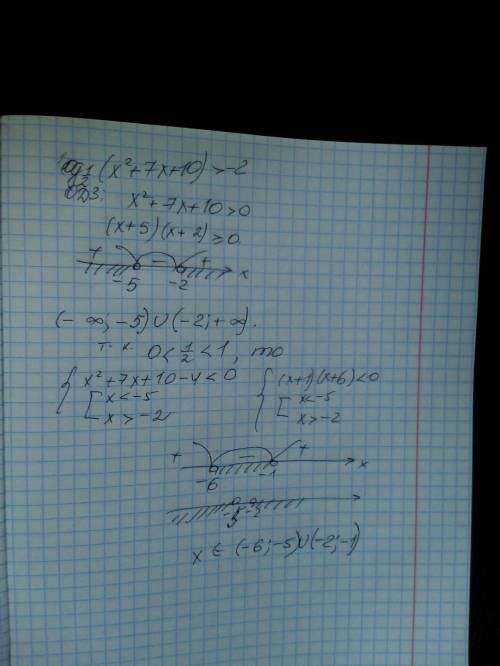 log 1/2 (x²+7x+10) > -2
ОДЗ: x²+7x+10>0
(x+5)(x+2)>0
+ - + x
-5 -2
(-∞; -5)∪(-2; +∞).
т. к. 0<1/2<1, то
{ x²+7x+10-4<0 { (x+1)(x+6)<0
[ x<-5 [ x<-5
x>-2 x>-2
+ - + x
-6 -1
-5 -2
x ∈ (-6; -5)∪(-2; -1)